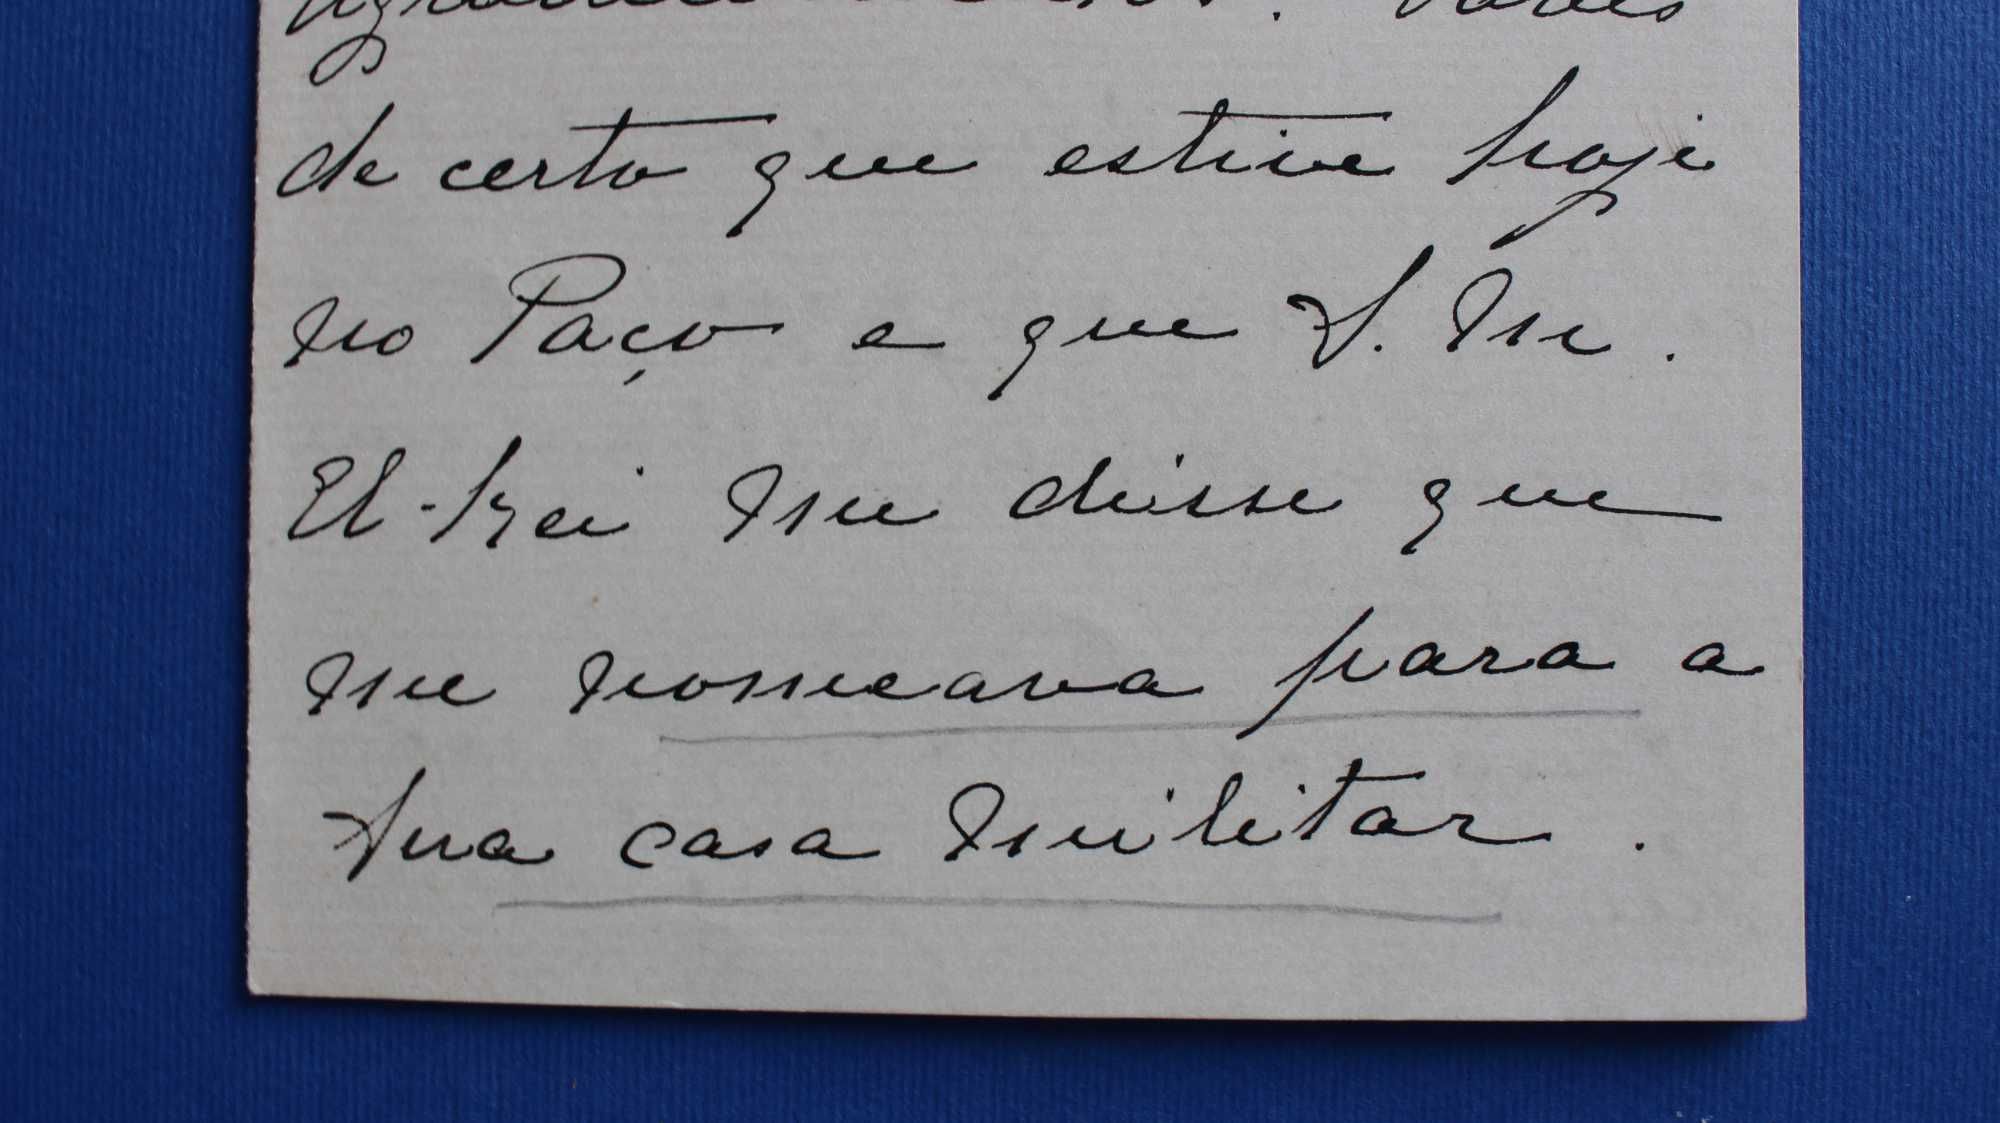 de certo que estive hoje
no Paço e que S. M.
El-Rei me disse que
me nomeava para a
Sua casa militar.